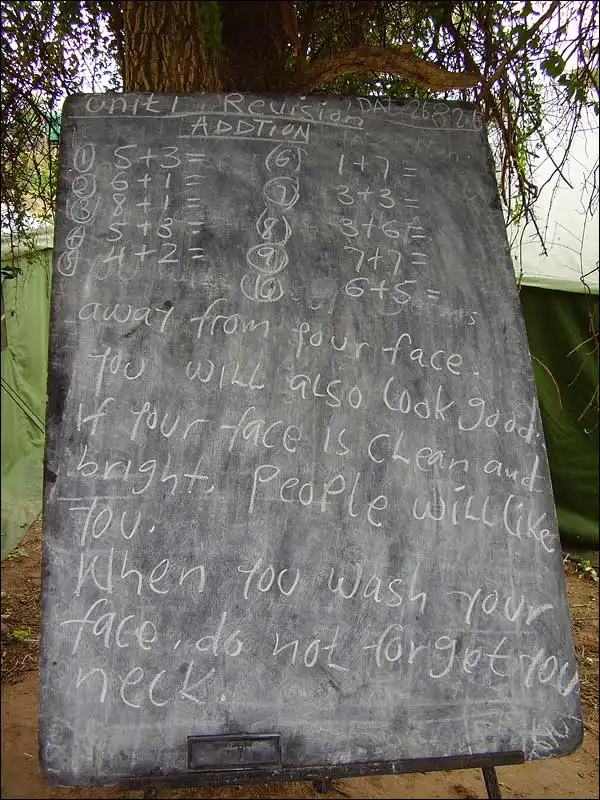 Unit 1 Revision
ADDTION
① 5+3= ⑥ 1+7=
② 6+1= ⑦ 3+3=
③ 8+1= ⑧ 3+6=
④ 5+3= ⑨ 7+7=
⑤ 4+2= ⑩ 6+5=
away from your face.
you will also look good.
If your face is clean and
bright, People will like
You.
When you wash your
face, do not forget you
neck.